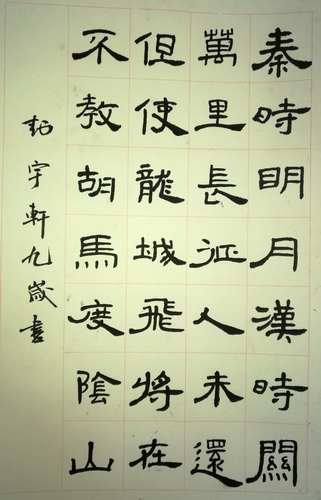 秦時明月漢時關
萬里長征人未還
但使龍城飛將在
不教胡馬度陰山
宇軒九歲書